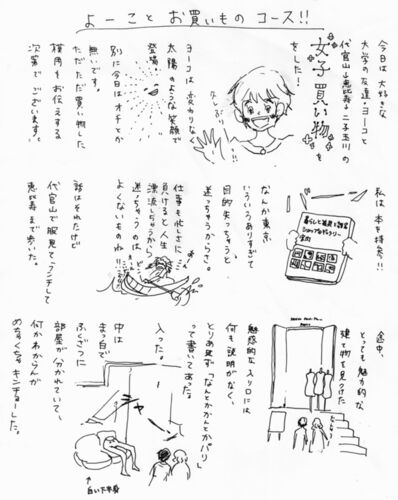 よーこと お買いもの コース!!
今日は 大好きな
大学の友達・ヨーコと
代官山→恵比寿→二子玉川の
女子買い物を
をした!
久しぶり
ヨーコは変わりなく
太陽のような笑顔で
登場。
別に今日はオチとか
無いです。
ただただ買い物した
様子をお伝えする
次第でございます。
私は本を持参!!
暮らしと雑貨と雑貨
ショップ&ギャラリー
案内
なんか東京
いろいろありすぎて
目的失っちゃうと
迷っちゃうからさ。
仕事も忙しさに
負けると人生
漂流しちゃうから
迷っちゃうのは
よくないものね
話はそれたけど
代官山で服見てランチして
恵比寿まで歩いた。
途中、
とっても魅力的な、
建て物を見つけた
魅惑的な入り口には
何も説明がなく、
とりあえず「なんとかかんとかパリ」
って書いてあった。
入った。
中は
まっ白で
ふくざつに
部屋が分かれていて、
何かわからんが
めちゃくちゃキンチョーした。
白い下半身